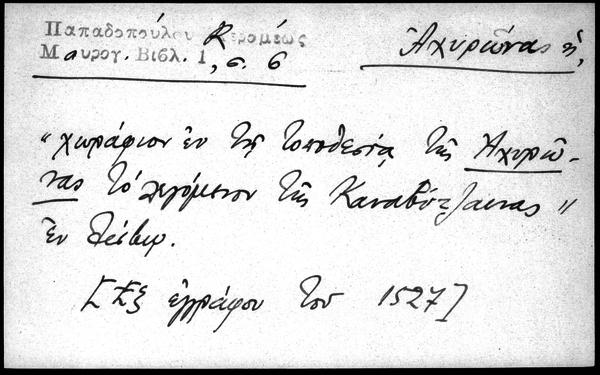 Παπαδοπούλου Κεραμέως
Μαυρογ. Βιβλ. 1, σ. 6
Ἀχυρῶνας ἡ,
„χωράφιον ἐν τῇ τοποθεσίᾳ τῆς Ἀχυρῶ-
νας τὸ λεγόμενον τῆς Καναβούτζαινας"
ἐν
[Ἐξ ἐγγράφου τοῦ 1527]